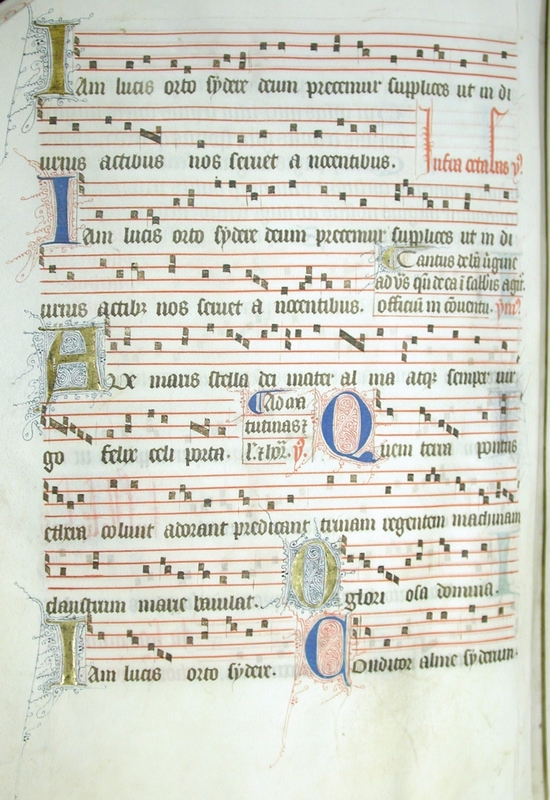 IAm lucis orto sydere deum precemur supplices ut in di
urnis actibus nos seruet a nocentibus.
Infra octauas
IAm lucis orto sydere deum precemur supplices ut in di
Cantus de
urnis actibz nos seruet a nocentibus.
officiũ in cõuentu. ymꝰ
AUe maris stella dei mater al ma atqz semper uir
Ad ma
tutinas ⁊
go felix celi porta.
QUem terra pontus
ethera colunt adorant predicant trinam regentem machinam
claustrum marie baiulat.
O glori osa domina.
IAm lucis orto sydere.
COnditor alme syderum.